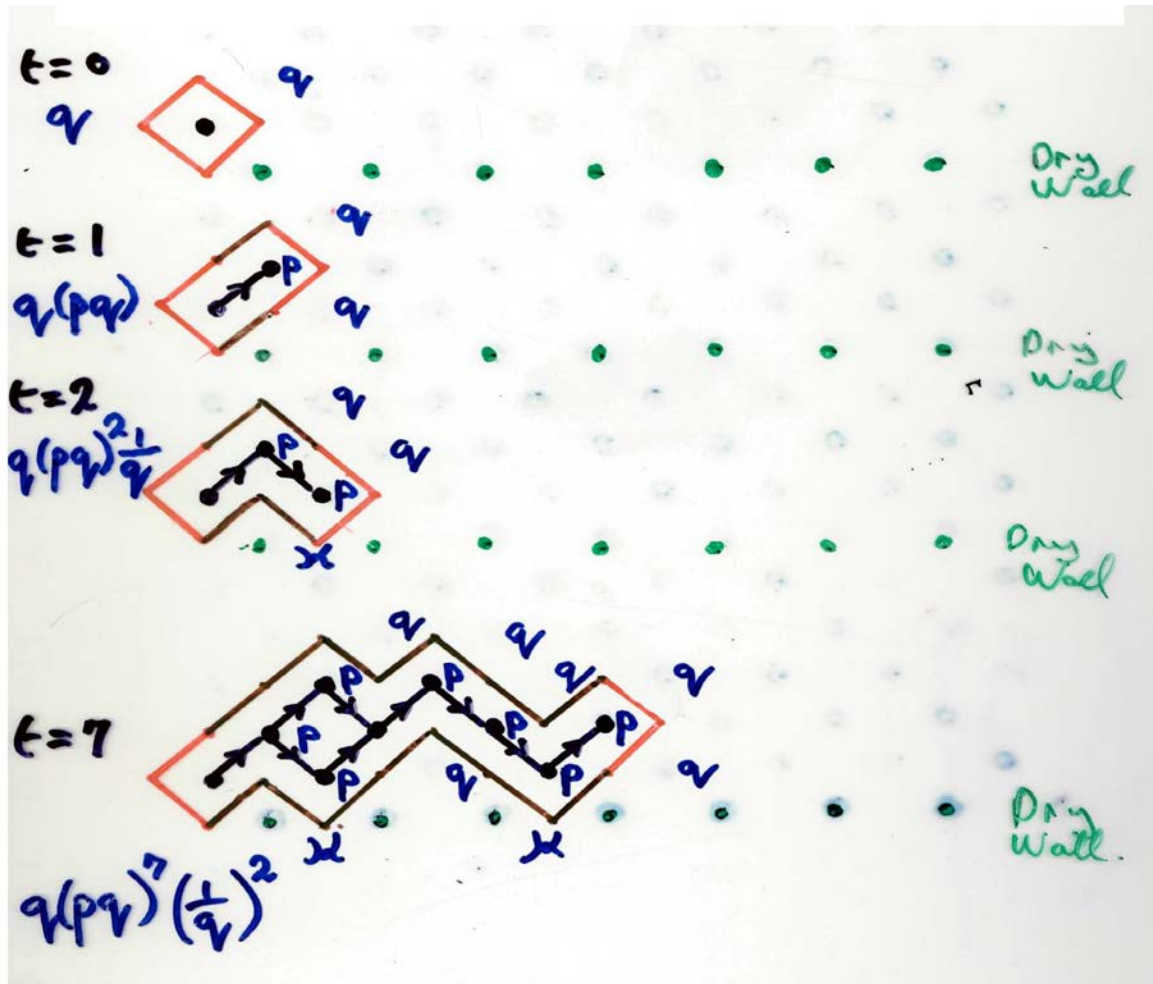 t=0
q
q
Dry
Wall
t=1
q
q(pq)
p
q
Dry
Wall
t=2
q
q(pq)² 1/q
p
q
p
x
Dry
Wall
q
q
q
q
p
p
t=7
p
p
p
p
p
q
q
x
x
Dry
Wall
q(pq)⁷(1/q)²